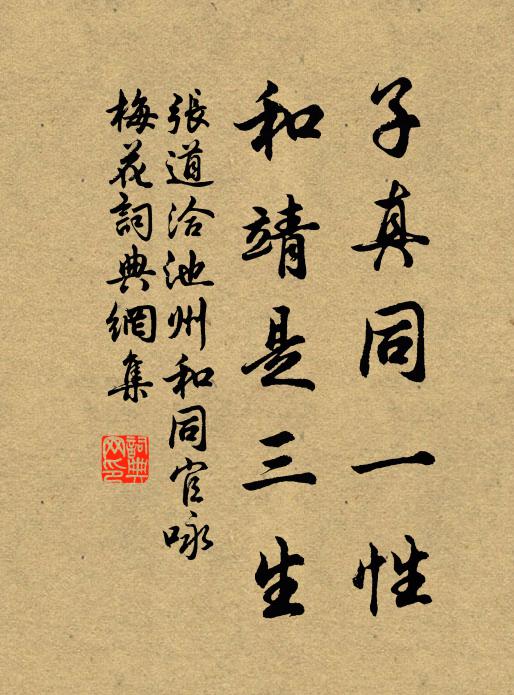 子真同一性
和靖是三生
張道洽池州和同官咏
梅花詞典網集
詞典网印